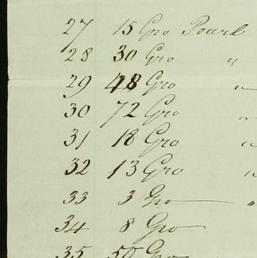 27 15 Gro Pearl
28 30 Gro "
29 48 Gro "
30 72 Gro "
31 18 Gro "
32 13 Gro "
33 3 Gro "
34 8 Gro
35 50 Gro